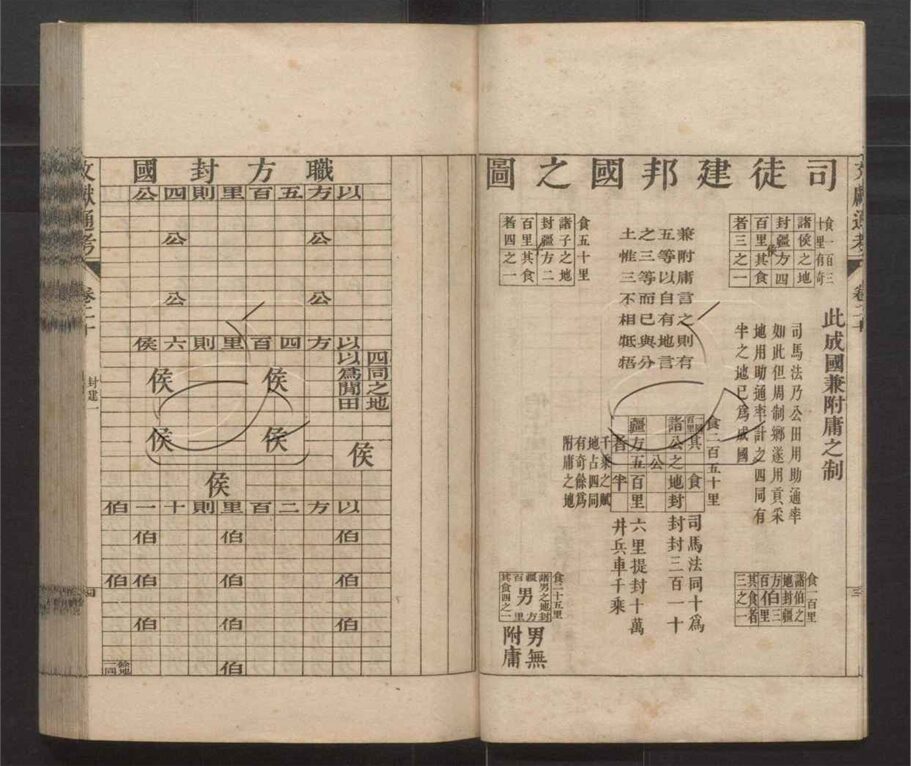 司徒建邦國之圖
此成國兼附庸之制
食一百三
十里有奇
諸侯之地
封疆方四
百里其食
者三之一
司馬法乃公田用助通率
如此但周制鄉遂用貢采
地用助通率計之四同有
半之地已為成國
兼附庸言之則有
五等以自有地言
之三等而已與分
土惟三不相牴牾
食五十里
諸子之地
封疆方二
百里其食
者四之一
食一百五十里
諸公之地封
公
疆方五百里
其食
者半
千乘之賦
地占四同
有奇餘為
附庸之地
司馬法同十為
封封三百一十
六里提封十萬
井兵車千乘
食一百里
諸伯之
地封疆
方三
伯
百里
其食者
三之一
食二十五里
諸男之地封
疆方
男
百里
其食四之一
男無
附庸
文獻通考
卷二
三
職方封國
以方五百里則四公
公 公
公 公
以方四百里則六侯
四同之地
以為閒田
侯 侯
侯 侯 侯
侯
以方二百里則十一伯
伯 伯 伯
伯 伯 伯 伯
伯 伯 伯
伯
餘地
一同
文獻通考
卷二十
封建一
四